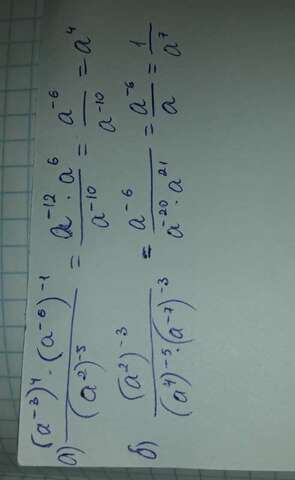 а) ((a⁻³)⁴ · (a⁻⁶)⁻¹)/(a²)⁻⁵ = (a⁻¹² · a⁶)/a⁻¹⁰ = a⁻⁶/a⁻¹⁰ = a⁴
б) (a²)⁻³/((a⁴)⁻⁵ · (a⁻⁷)⁻³) = a⁻⁶/(a⁻²⁰ · a²¹) = a⁻⁶/a = 1/a⁷